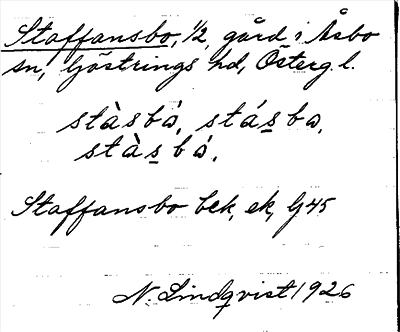 Staffansbo, 1/2, gård i Åsbo
sn, Göstrings hd, Österg. l.
stàsbó, stásbo,
stàsbó,
Staffansbo bek, ek, G 45
N. Lindqvist 1926